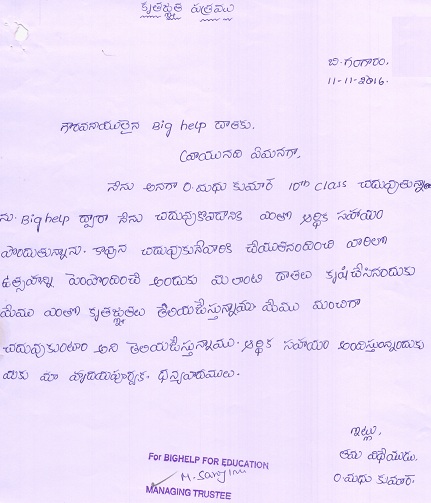 కృతజ్ఞత పత్రము
బి.గంగారం,
11-11-2016.
గౌరవనీయులైన Big help దాతకు,
వ్రాయునది ఏమనగా,
నేను అనగా O.మధు కుమార్ 10th class చదువుతున్నా
ను. Big help ద్వారా నేను చదువుకోవడానికి ఎంతో ఆర్థిక సహాయం
పొందుతున్నాను. కావున చదువుకునేవారికి చేయూతనందించి వారిలో
ఉత్సాహాన్ని పెంపొందించే అందుకు మీలాంటి దాతలు కృషిచేసినందుకు
మేము ఎంతో కృతజ్ఞతలు తెలియజేస్తున్నాము మేము మంచిగా
చదువుకుంటాం అని తెలియజేస్తున్నాము. ఆర్థిక సహాయం అందిస్తున్నందుకు
మీకు మా హృదయపూర్వక ధన్యవాదములు.
ఇట్లు,
తమ విధేయుడు,
O.మధు కుమార్.
For BIGHELP FOR EDUCATION
MANAGING TRUSTEE